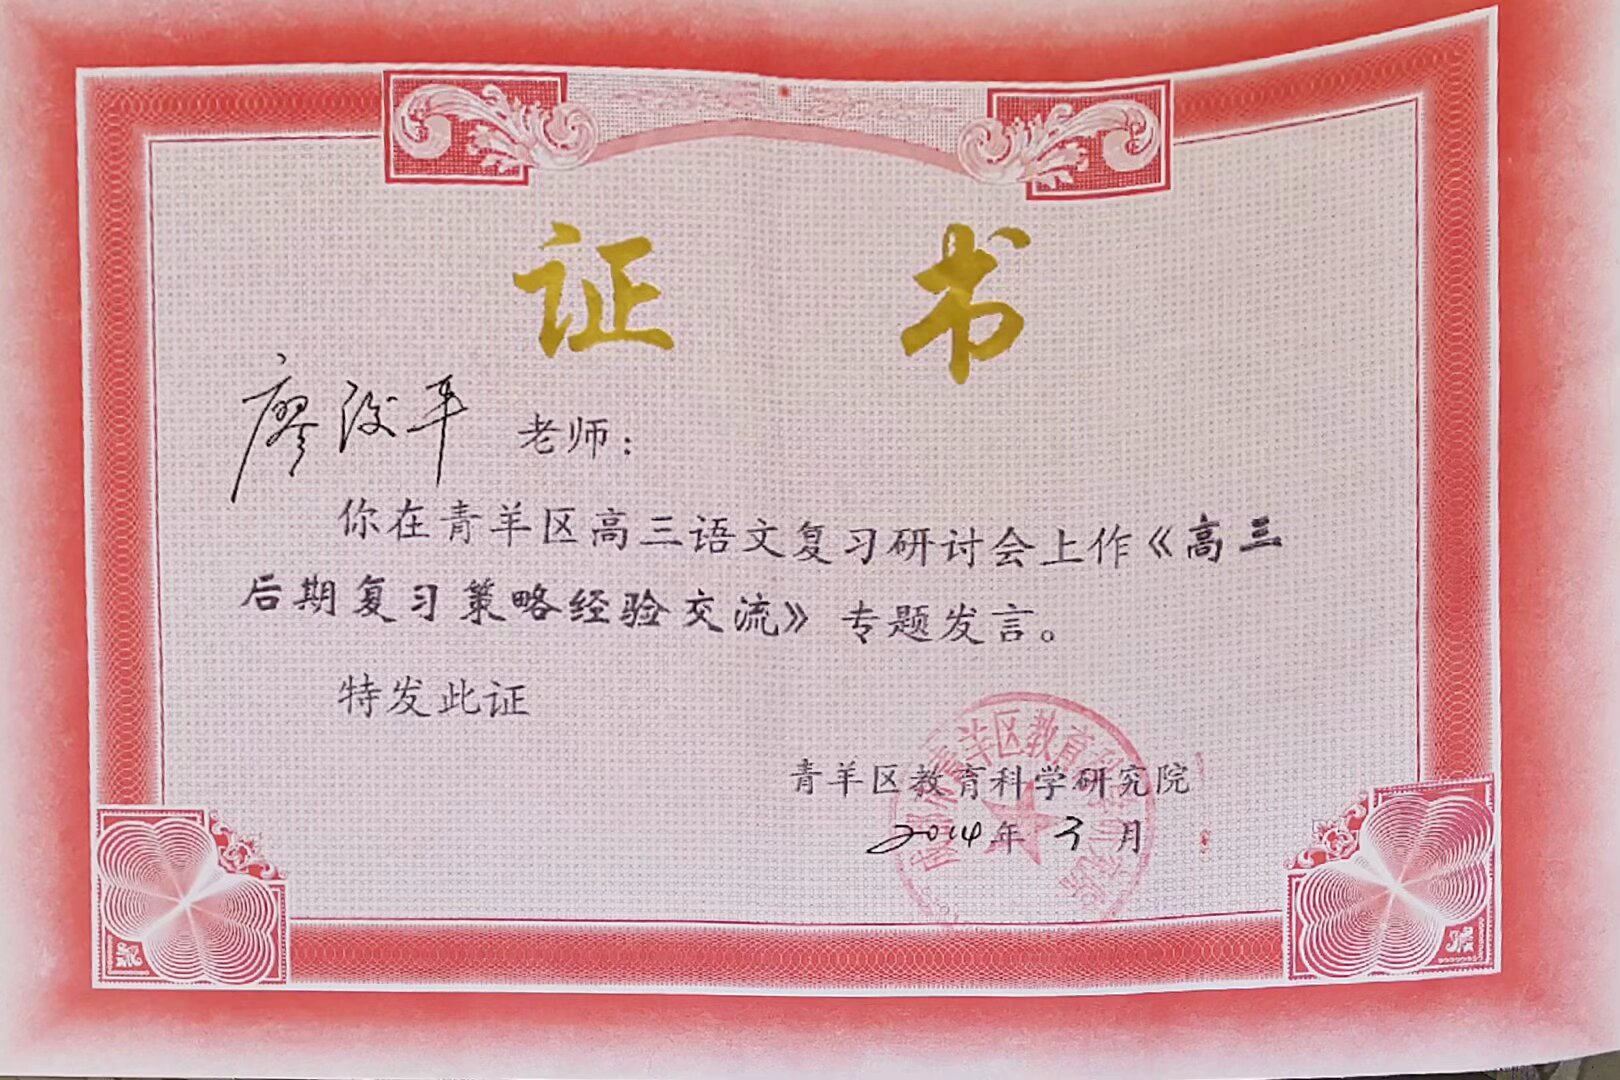 证书
廖俊平 老师：
你在青羊区高三语文复习研讨会上作《高三
后期复习策略经验交流》专题发言。
特发此证
青羊区教育科学研究院
2014年3月